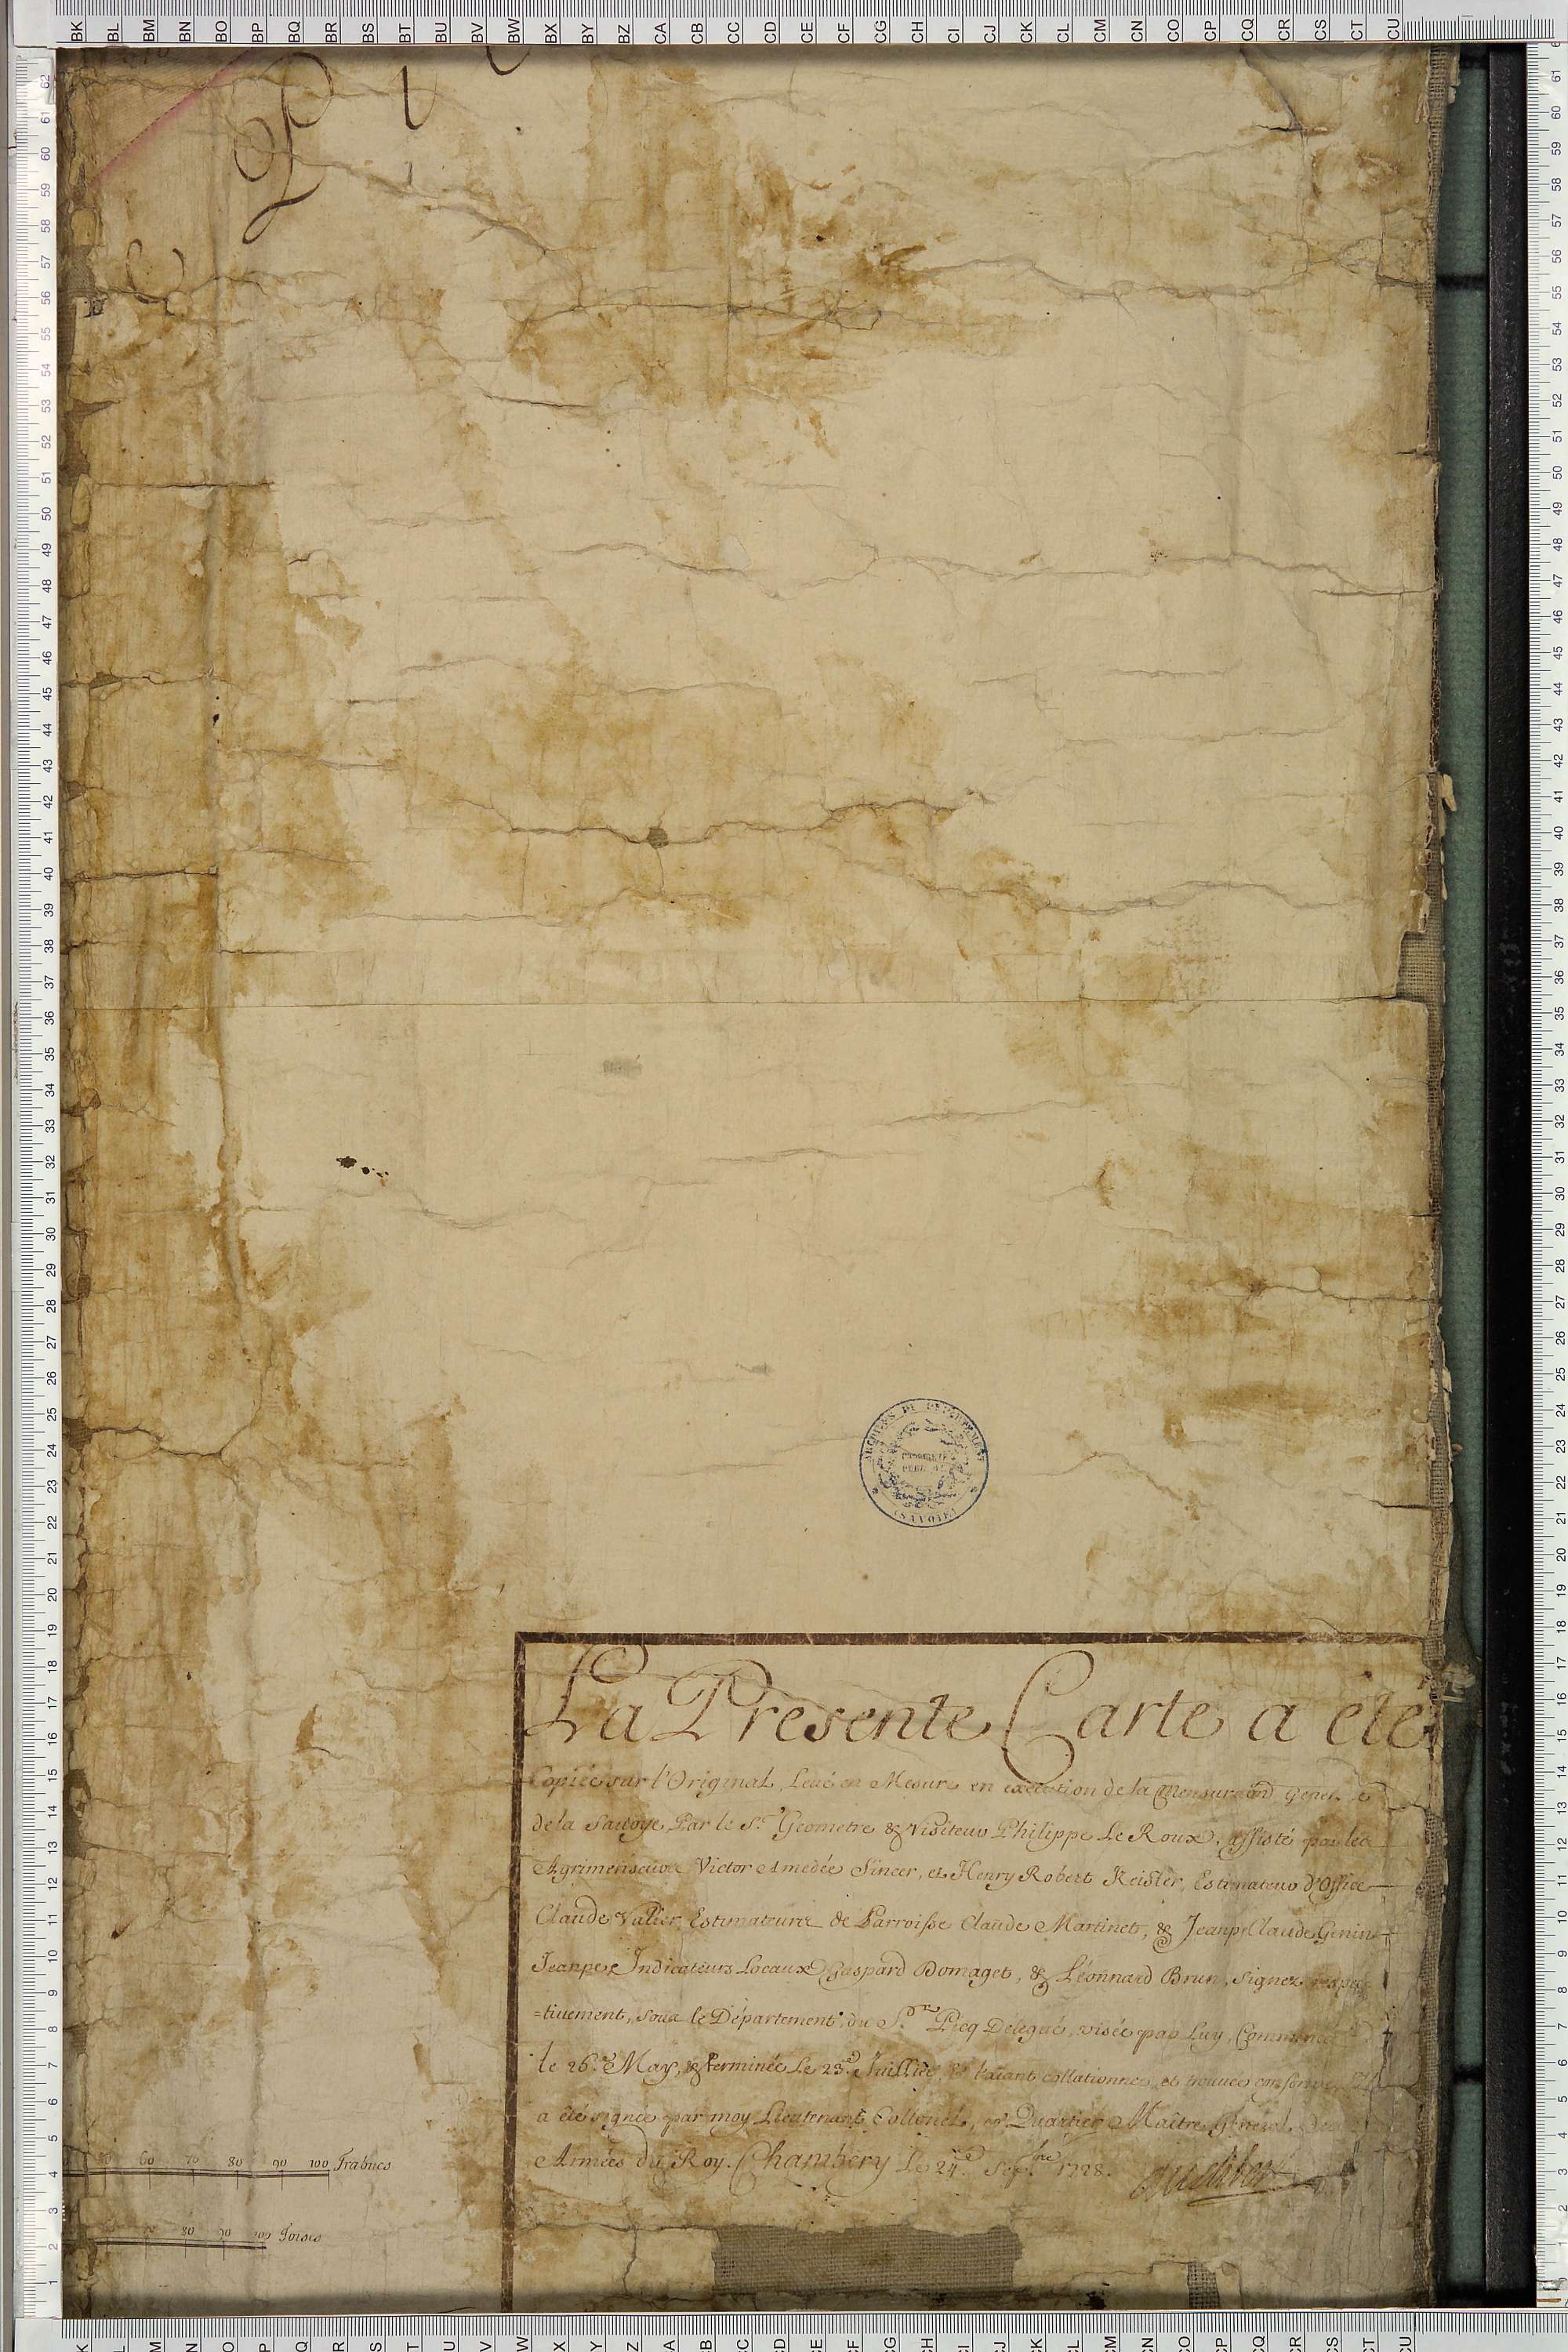 ARCHIVES DU DÉPARTEMENT
(SAVOIE)
La Presente Carte a été
Copiée sur l'Original, Levé en Mesure en execution de la Mensuraõn
de la Savoye, Par le Sr. Geometre & Visiteur Philippe Le Roux, assisté par les
Agrimenseurs Victor Amedée Sincer, et Henry Robert Keisler, Estimateur d'Office
Claude Valier, Estimateurs de Parroisse Claude Martinet, & Jeanp. Claude Genin
Jeanpere Indicateurs Locaux Gaspard Domaget, & Léonnard Brun, signez respec
=tivement, sous le Département du Sr. Picq Delegué, visée par Luy, Commencée
le 26.e May, & terminée Le 23.e Juilliet, & l'aiant collationnée et trouvée conforme
a été signée par moy Lieutenant Collonel, et Quartier Maître General des
Armées du Roy. Chambery Le 24.e Sepbre 1728.
60 70 80 90 100 Trabucs
80 90 100 Toises